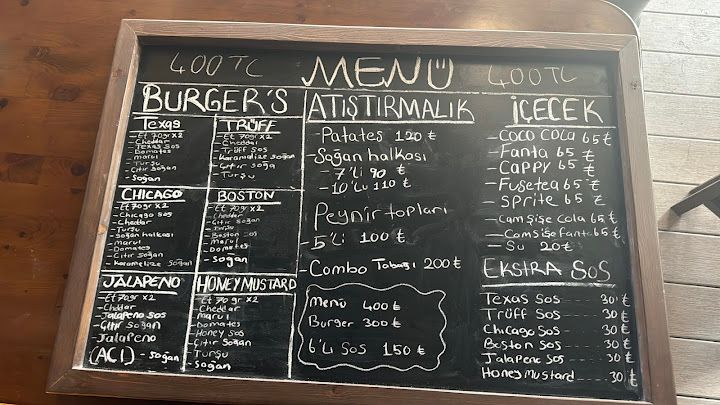 400TC MENÜ 400TC
BURGER'S
Texas
- Et 70gr x2
- Cheddar
- Texas Sos
- Domates
- Marul
- Turşu
- Çıtır Soğan
- Soğan
TRÜFF
- Et 70gr x2
- Cheddar
- Trüff Sos
- Karamelize Soğan
- Çıtır Soğan
- Turşu
CHICAGO
- Et 70gr x2
- Chicago Sos
- Cheddar
- Turşu
- Soğan halkası
- Marul
- Domates
- Çıtır Soğan
- Karamelize Soğan
BOSTON
- Et 70gr x2
- Cheddar
- Çıtır Soğan
- Turşu
- Boston Sos
- Marul
- Domates
- Soğan
JALAPENO
- Et 70gr x2
- Cheddar
- Jalapeno Sos
- Çıtır Soğan
- Jalapeno
(ACI) - Soğan
HONEYMUSTARD
- Et 70 gr x2
- Cheddar
- Marul
- Domates
- Honey Sos
- Çıtır Soğan
- Turşu
- Soğan
ATIŞTIRMALIK
- Patates 120 ₺
- Soğan halkası
- 7'Li 90 ₺
- 10'Lu 110 ₺
Peynir topları
- 5'Li 100 ₺
- Combo Tabağı 200 ₺
Menü 400 ₺
Burger 300 ₺
6'Lı Sos 150 ₺
İÇECEK
- Coca Cola 65 ₺
- Fanta 65 ₺
- Cappy 65 ₺
- Fusetea 65 ₺
- Sprite 65 ₺
- Cam Şişe Cola 65 ₺
- Cam Şişe Fanta 65 ₺
- Su 20 ₺
EKSTRA SOS
Texas Sos 30 ₺
Trüff Sos 30 ₺
Chicago Sos 30 ₺
Boston Sos 30 ₺
Jalapeno Sos 30 ₺
Honey Mustard 30 ₺